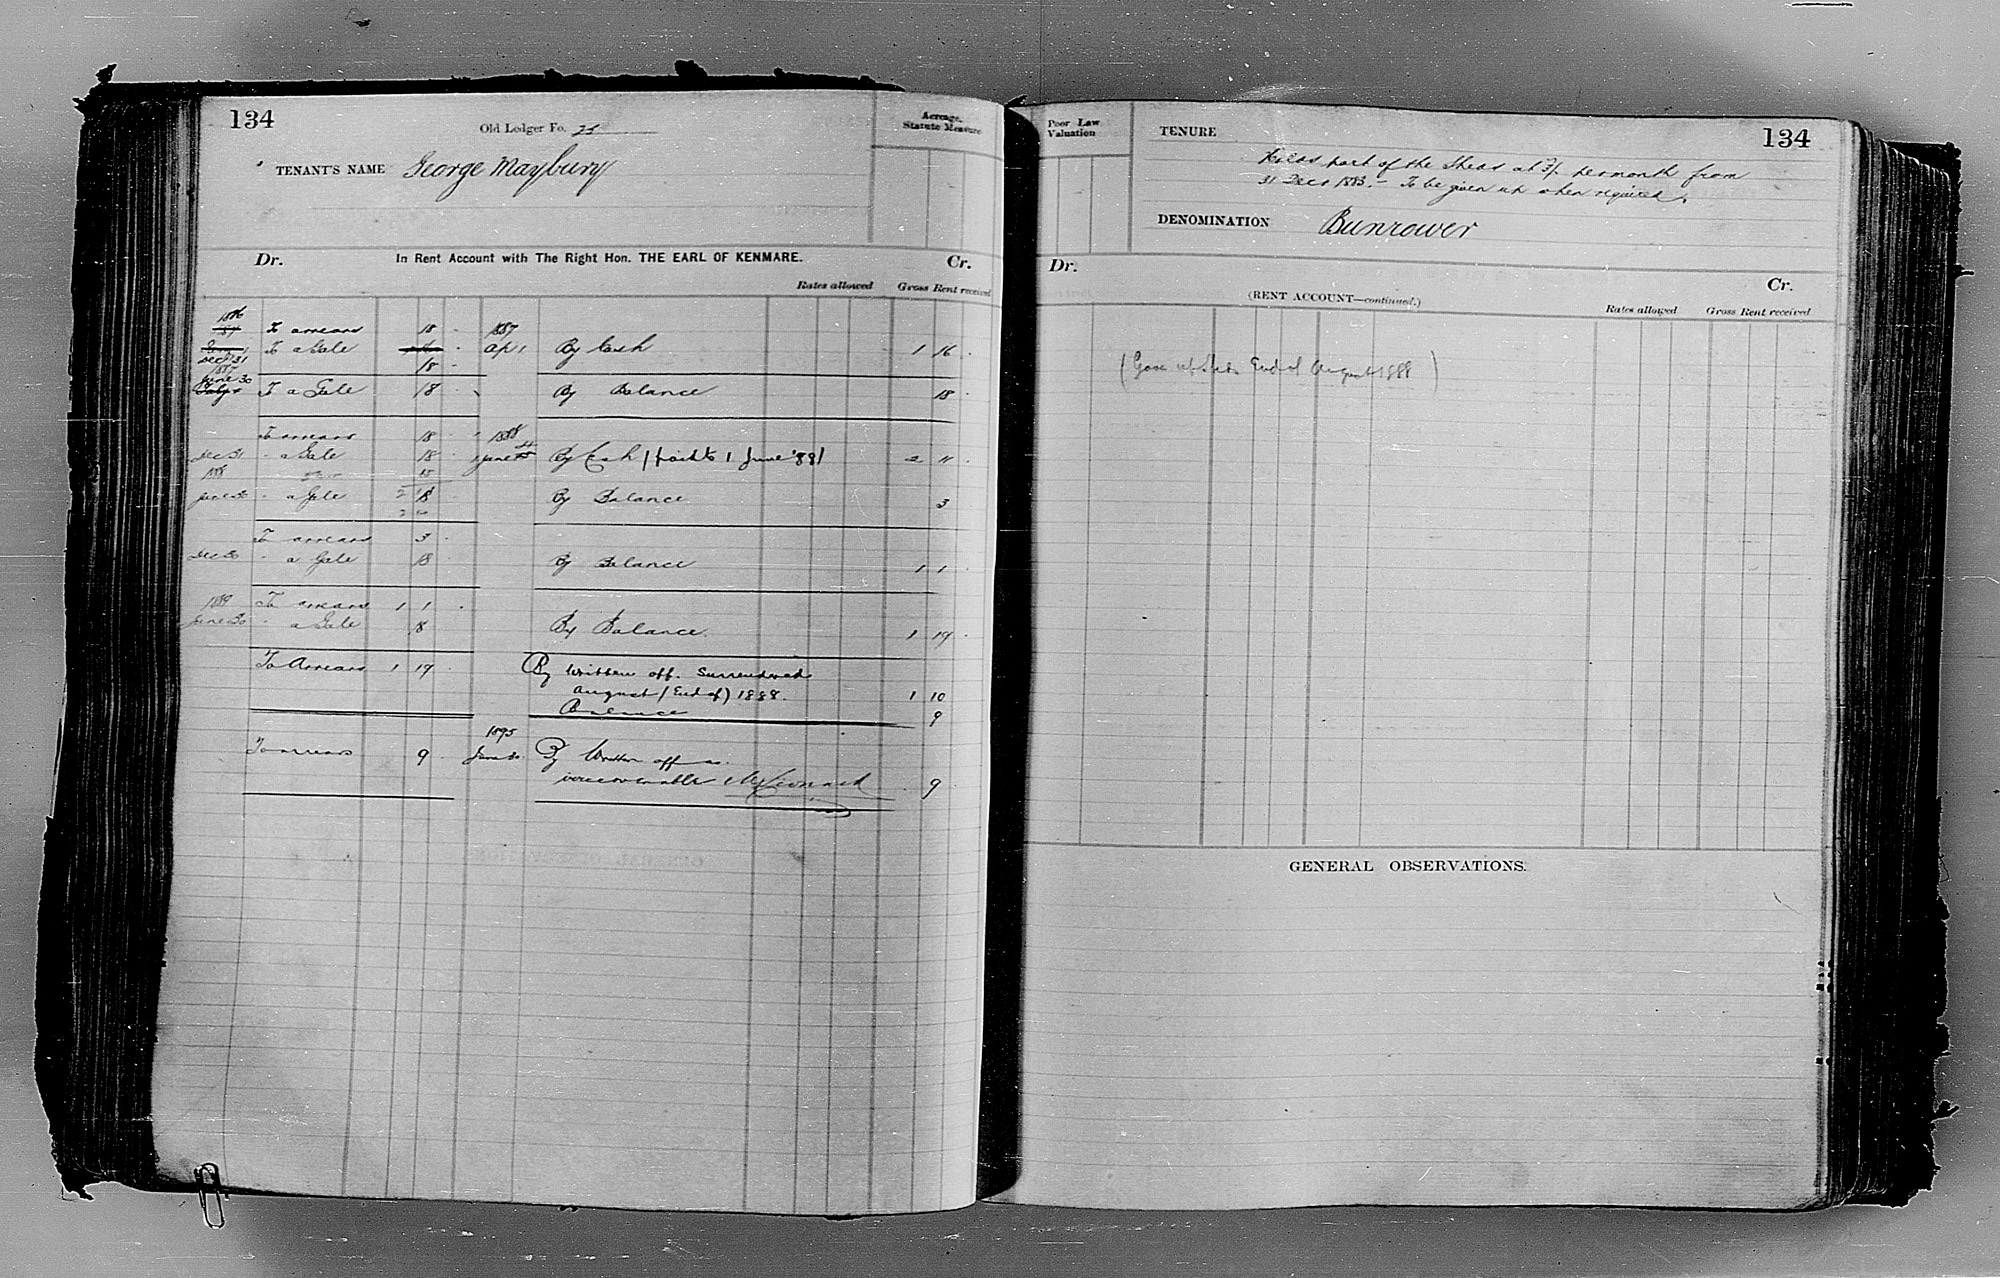 134
Old Ledger Fo. 25
Acreage.
Statute Measure
TENANT'S NAME George Maybury
Dr. In Rent Account with The Right Hon. THE EARL OF KENMARE. Cr.
Rates allowed Gross Rent received
1886 To arrears 18 1887
To a Gale Apl 1 By Cash 1 16
Dec 31 18
1887
June 30 To a Gale 18 By Balance 18
To arrears 18 1888
Dec 31 " a Gale 18 June By Cash (paid to 1 June '88) 2 11
1888 15
June 30 " a Gale 2 18 By Balance 3
To arrears 3
Dec " a Gale 18 By Balance 1 1
1889 To arrears 1 1
June 30 " a Gale 18 By Balance 1 19
To Arrears 1 19 By written off. Surrendered
August (End of) 1888. 1 10
Balance 9
1895
To arrears 9 June 30 By Written off as
irrecoverable 9
Poor Law
Valuation
TENURE
134
Holds part of the Sheds at 3/ per month from
31 Decr 1883. – To be given up when required.
DENOMINATION Bunrower
Dr. Cr.
(RENT ACCOUNT—continued.)
Rates allowed Gross Rent received
(Gave up Sheds End of August 1888)
GENERAL OBSERVATIONS.